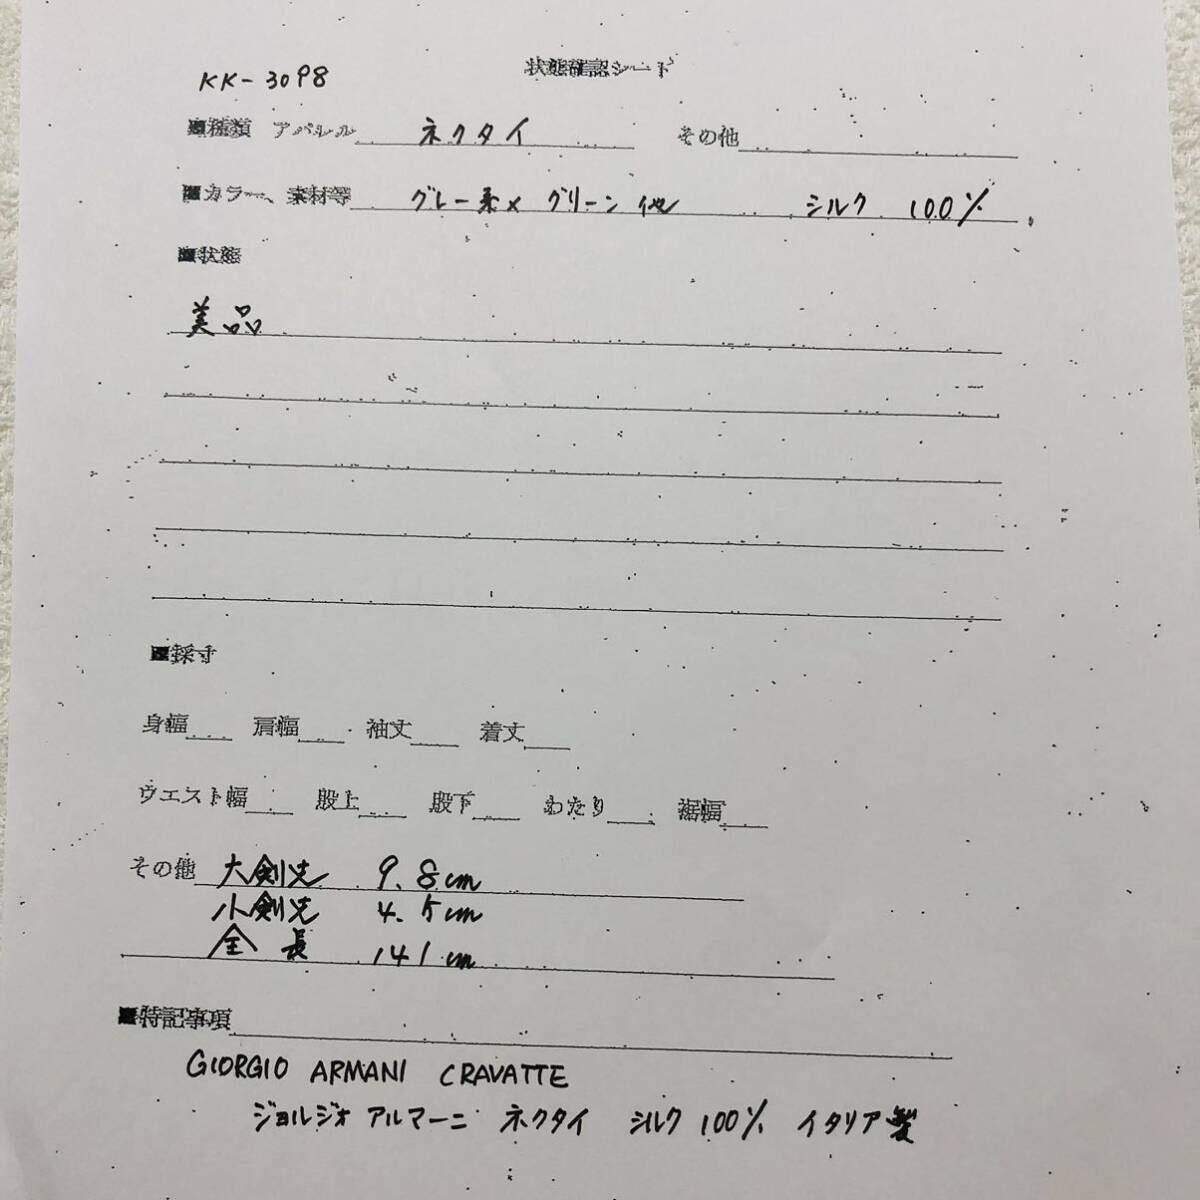 状態確認シート
KK-3098
■種類 アパレル ネクタイ その他
■カラー、素材等 グレー系× グリーン他 シルク 100%
■状態
美品
■採寸
身幅 肩幅 袖丈 着丈
ウエスト幅 股上 股下 わたり 裾幅
その他 大剣先 9.8cm
小剣先 4.5cm
全長 141cm
■特記事項
GIORGIO ARMANI CRAVATTE
ジョルジオ アルマーニ ネクタイ シルク 100% イタリア製